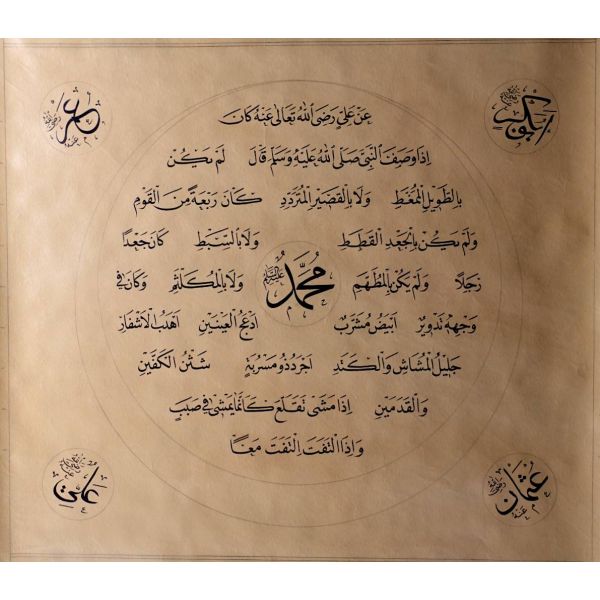 ابوبكر رضي الله عنه
عمر رضي الله عنه
عَنْ عَلِيٍّ رَضِيَ اللهُ تَعَالىٰ عَنْهُ كَانَ
اِذَا وَصَفَ النَّبِيَّ صَلَّى اللهُ عَلَيْهِ وَسَلَّمَ قَالَ لَمْ يَكُنْ
بِالطَّوِيلِ الْمُمَّغِطِ وَلَا بِالْقَصِيرِ الْمُتَرَدِّدِ كَانَ رَبْعَةً مِنَ الْقَوْمِ
وَلَمْ يَكُنْ بِالْجَعْدِ الْقَطَطِ وَلَا بِالسَّبِطِ كَانَ جَعْدًا
رَجِلًا وَلَمْ يَكُنْ بِالْمُطَهَّمِ مُحَمَّد عليه السلام وَلَا بِالْمُكَلْثَمِ وَكَانَ فِي
وَجْهِهِ تَدْوِيرٌ اَبْيَضُ مُشْرَبٌ اَدْعَجُ الْعَيْنَيْنِ اَهْدَبُ الْاَشْفَارِ
جَلِيلُ الْمُشَاشِ وَالْكَتَدِ اَجْرَدُ ذُو مَسْرُبَةٍ شَثْنُ الْكَفَّيْنِ
وَالْقَدَمَيْنِ اِذَا مَشٰى تَقَلَّعَ كَاَنَّمَا يَمْشِي فِي صَبَبٍ
وَاِذَا الْتَفَتَ اِلْتَفَتَ مَعًا
عثمان رضي الله عنه
علي